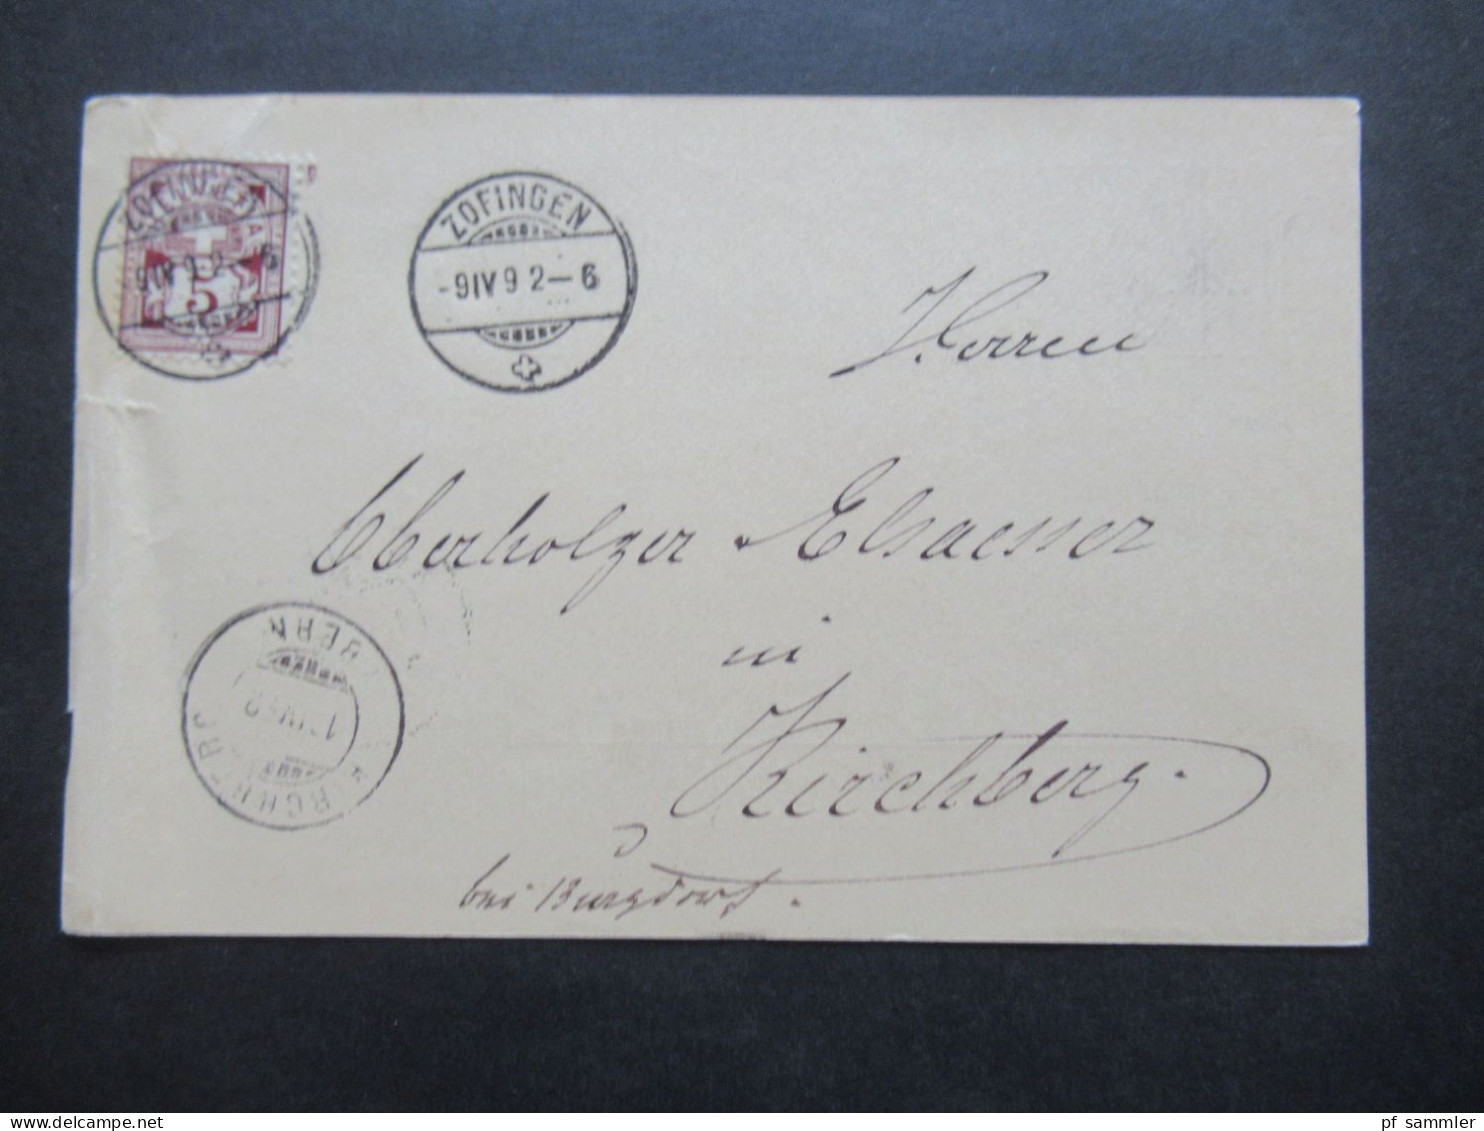 ZOFINGEN
-9 IV 9 2-6
5
ZOFINGEN
-9 IV 9 2-6
Herren
Oberholzer & Elsaesser
in
Kirchberg.
bei Burgdorf.
BERN
delcampe.net
pf sammler